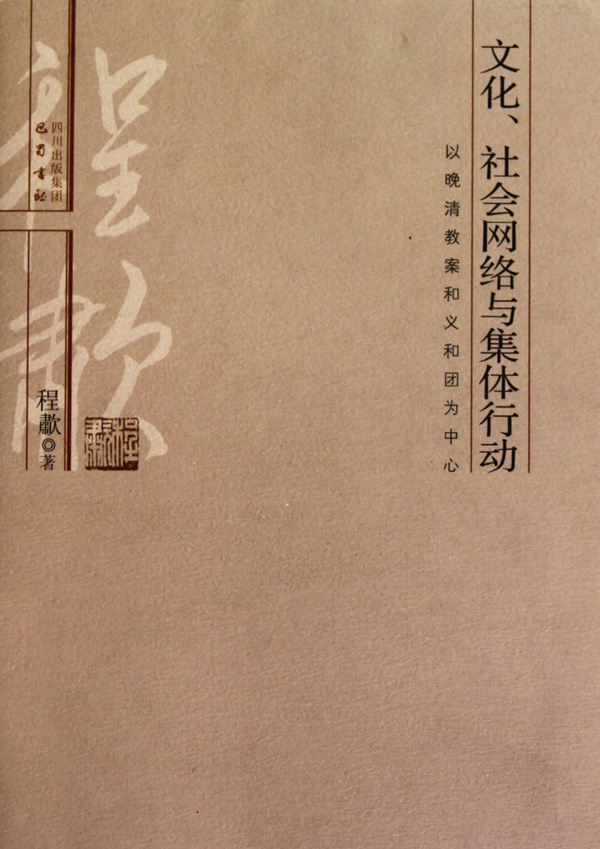 文化、社会网络与集体行动
以晚清教案和义和团为中心
四川出版集团
巴蜀书社
程歗
程歗◎著